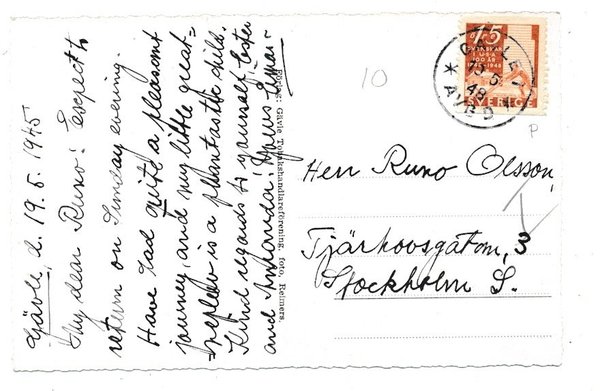 Gävle, d. 19.5. 1945
My dear Runo! Expect to
return on Sunday evening.
Have had quite a pleasant
journey, and my little great-
=nephew is a phantastic child.
Kind regards to yourself, Ester
and Amanda! Yours
Gävle Tobakshandlareförening, foto. Reimers.
15
SVENSKAR I
U.S.A.
100 ÅR
1948
SVERIGE
19 5
48
AVG
10
P
Herr Runo Olsson,
Tjärhovsgatan, 3
Stockholm S.